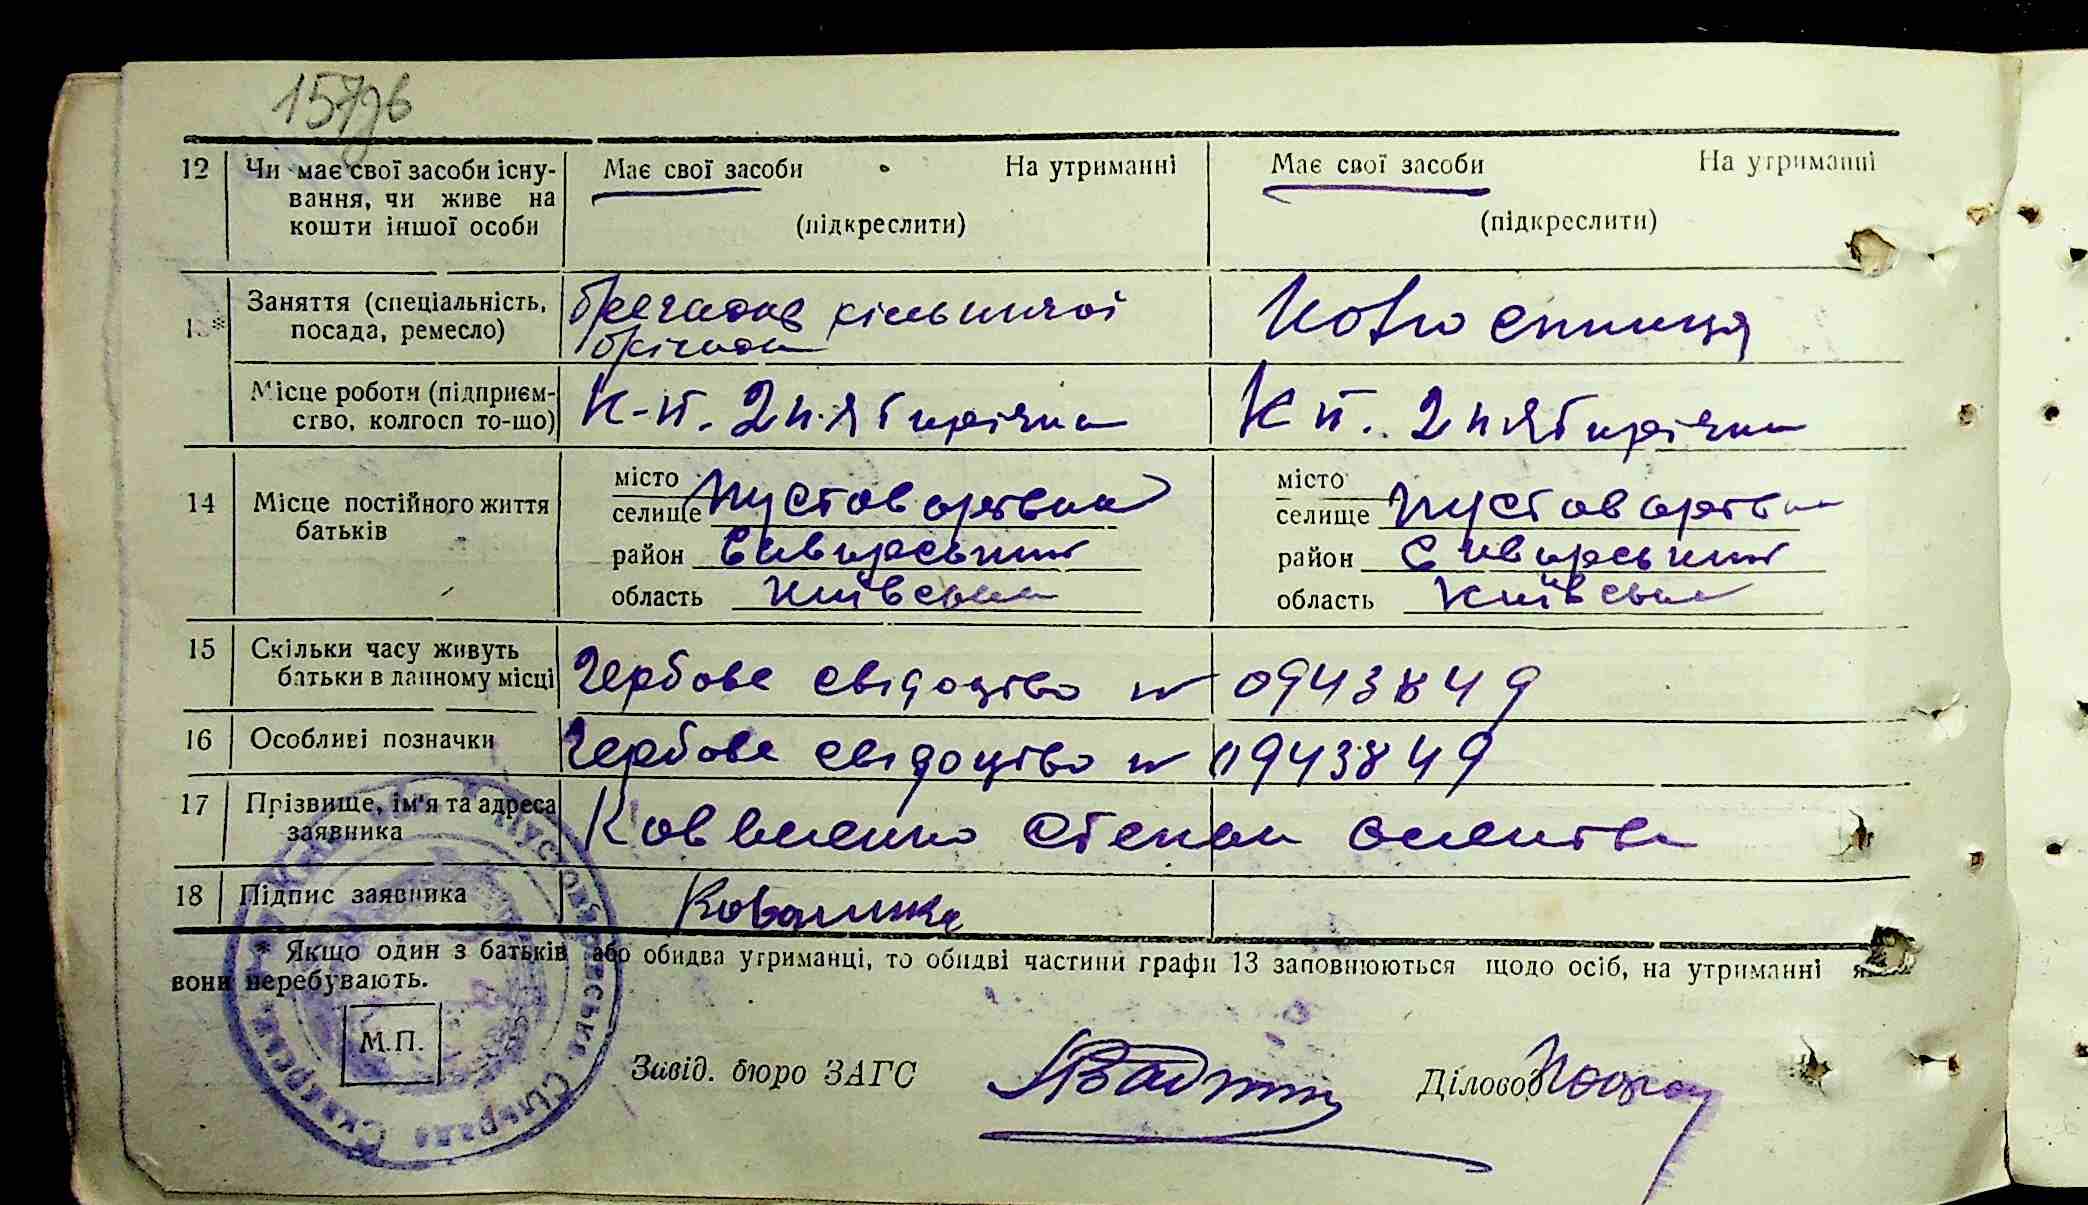 157зв
12 Чи має свої засоби існу- Має свої засоби На утриманні Має свої засоби На утриманні
вання, чи живе на
кошти іншої особи (підкреслити) (підкреслити)
Заняття (спеціальність,
посада, ремесло)
Місце роботи (підприєм- К-п. 2 п'ятирічка К п. 2 п'ятирічка
ство, колгосп то-що)
14 Місце постійного життя батьків
місто місто
селище Пустоварівка селище Пустоварівка
район Сквирський район Сквирський
область Київська область Київська
15 Скільки часу живуть
батьки в данному місці Гербове свідоцтво № 0943849
16 Особливі позначки Гербове свідоцтво № 0943849
17 Прізвище, ім'я та адреса
заявника Коваленко Степан
18 Підпис заявника Коваленко
* Якщо один з батьків або обидва утриманці, то обидві частини графи 13 заповнюються щодо осіб, на утриманні як
вони перебувають.
М.П.
Завід. бюро ЗАГС Діловод